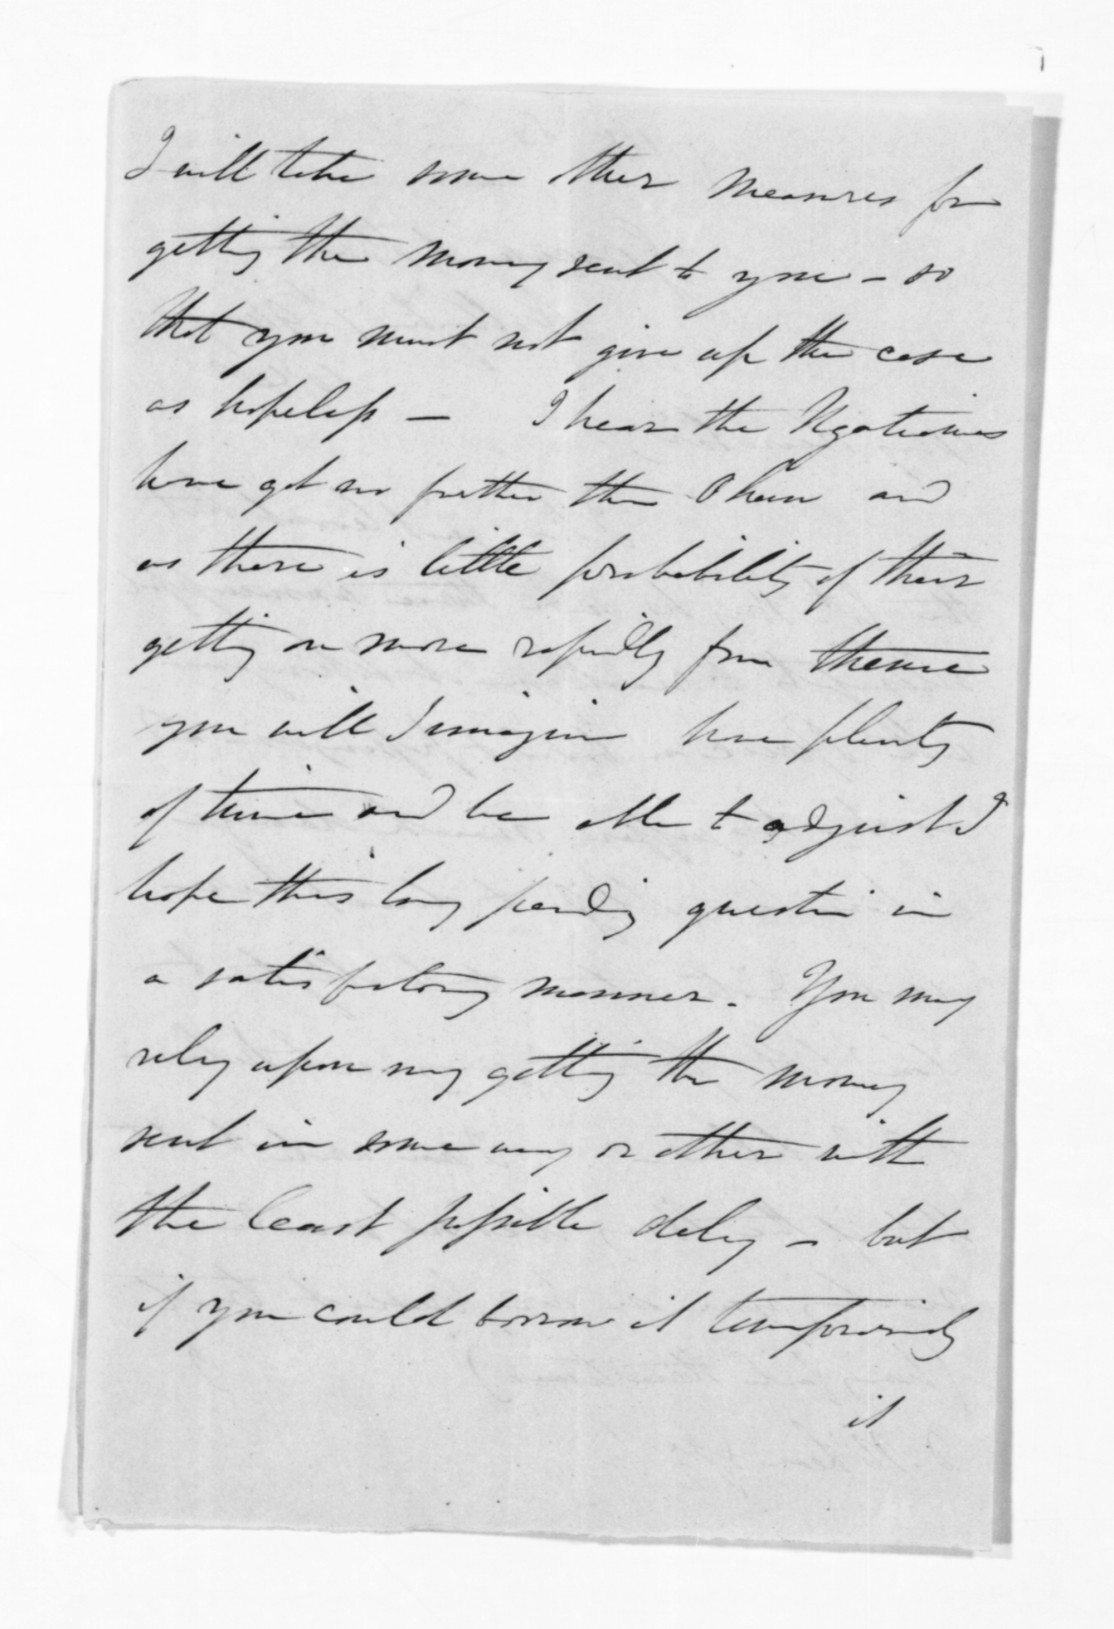 I will take some other measures for
getting the money sent to you – so
that you must not give up the case
as hopeless – I hear the
have got no further than and
as there is little probability of their
getting on more rapidly from thence
you will I imagine have plenty
of time and be able to adjust I
hope this long pending question in
a satisfactory manner. You may
rely upon my getting the money
sent in some way or other with
the least possible delay – but
if you could borrow it temporarily
it